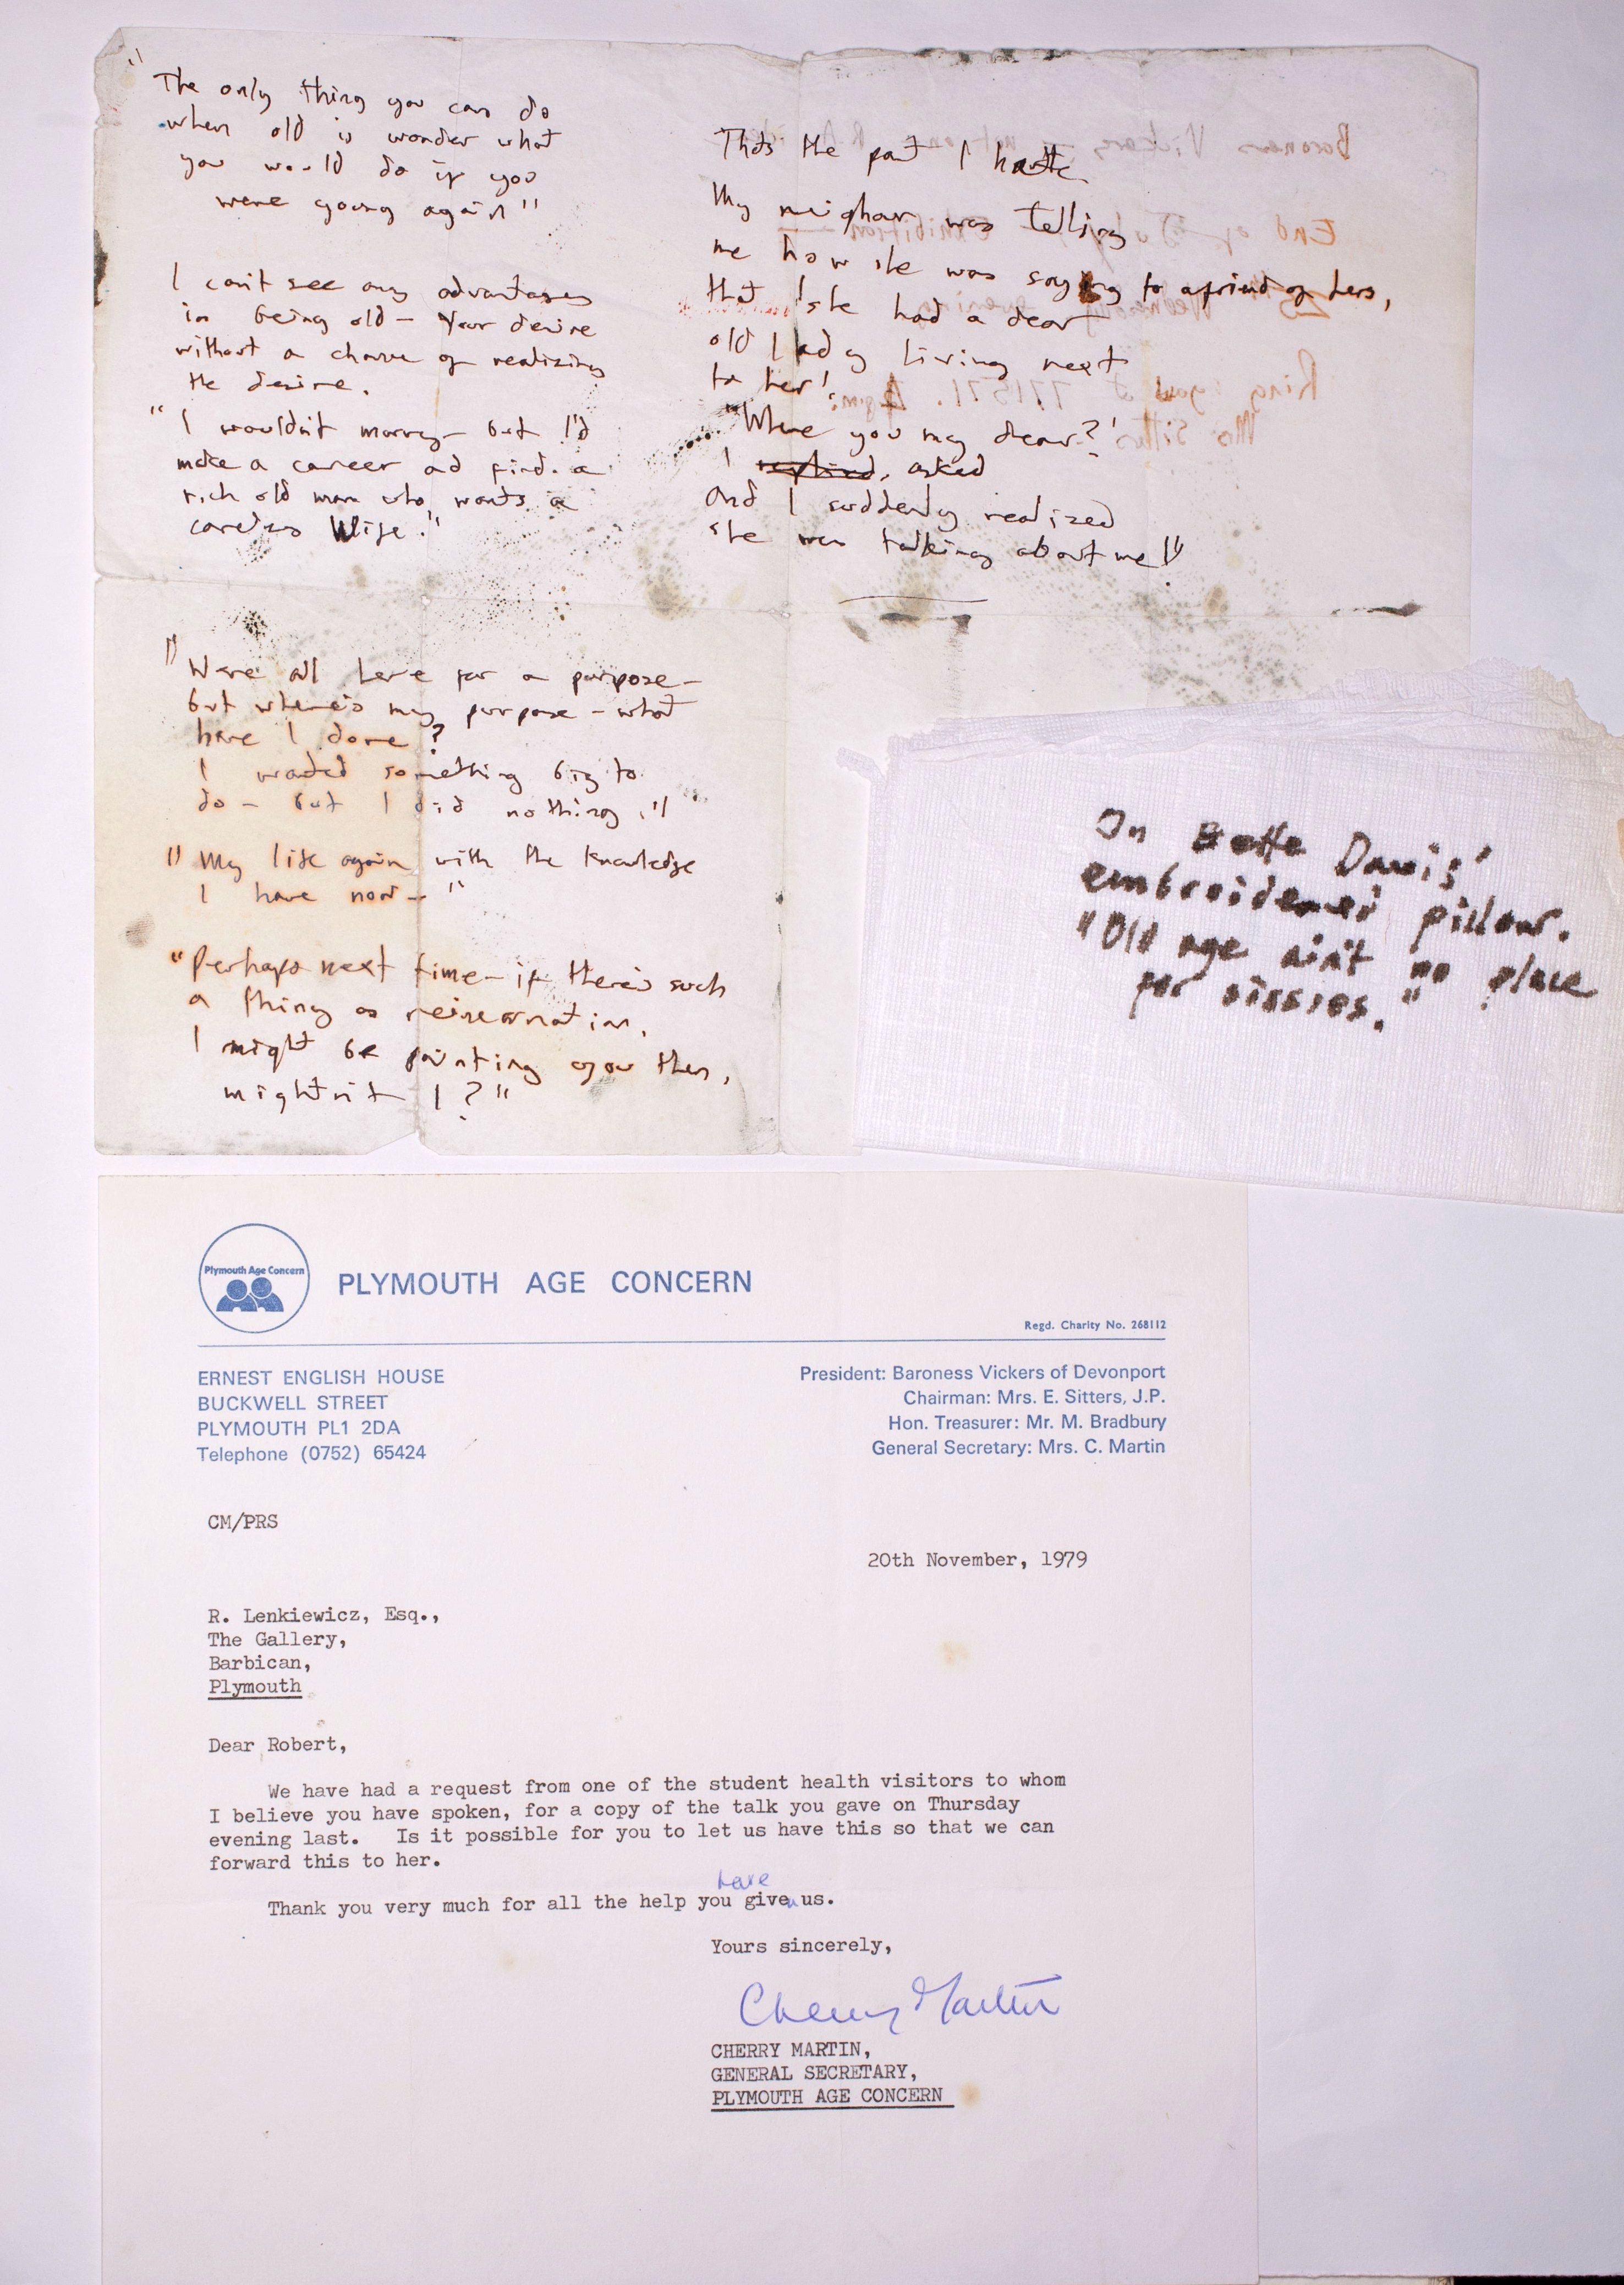 "The only thing you can do
when old is wonder what
you would do if you
were young again"
I can't see any advantages
in being old - Your desire
without a chance of realizing
the desire.
"I wouldn't marry - but I'd
make a career and find a
rich old man who wants a
careless Wife."
"Were all here for a purpose -
but where's my purpose - what
have I done?
I wanted something big to
do - but I did nothing."
"My life again with the knowledge
I have now - "
"Perhaps next time - if there's such
a thing as reincarnation,
I might be painting you then,
mightn't I?"
Thats the part I hate
My neighbour was telling
me how she was saying to a friend of hers,
that 'she had a dear
old lady living next
to her'.
"Where you my dear?'
I replied, asked
and I suddenly realized
she was talking about me!"
On Bette Davis'
embroidered pillow.
"Old age ain't no place
for sissies."
Plymouth Age Concern
PLYMOUTH AGE CONCERN
Regd. Charity No. 268112
ERNEST ENGLISH HOUSE
BUCKWELL STREET
PLYMOUTH PL1 2DA
Telephone (0752) 65424
President: Baroness Vickers of Devonport
Chairman: Mrs. E. Sitters, J.P.
Hon. Treasurer: Mr. M. Bradbury
General Secretary: Mrs. C. Martin
CM/PRS
20th November, 1979
R. Lenkiewicz, Esq.,
The Gallery,
Barbican,
Plymouth
Dear Robert,
We have had a request from one of the student health visitors to whom
I believe you have spoken, for a copy of the talk you gave on Thursday
evening last. Is it possible for you to let us have this so that we can
forward this to her.
have
Thank you very much for all the help you given us.
Yours sincerely,
Cherry Martin
CHERRY MARTIN,
GENERAL SECRETARY,
PLYMOUTH AGE CONCERN